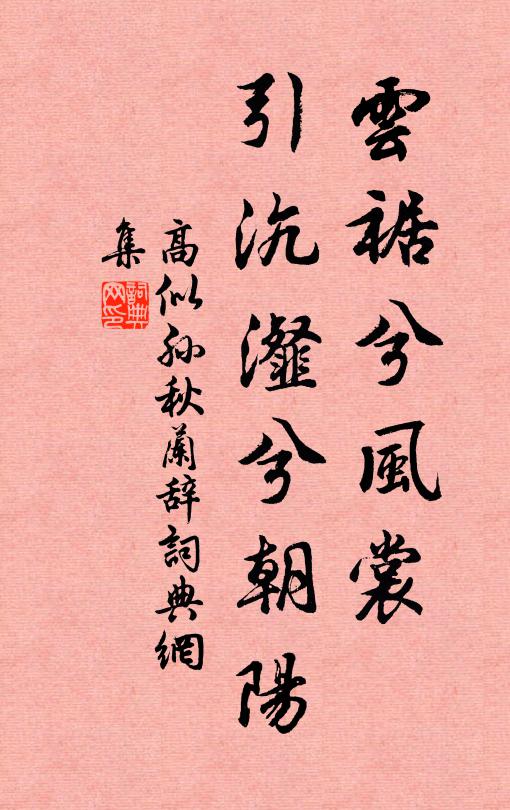 雲裾兮風裳
引沆瀣兮朝陽
高似孫秋蘭辭詞典網
集
詞典
网印